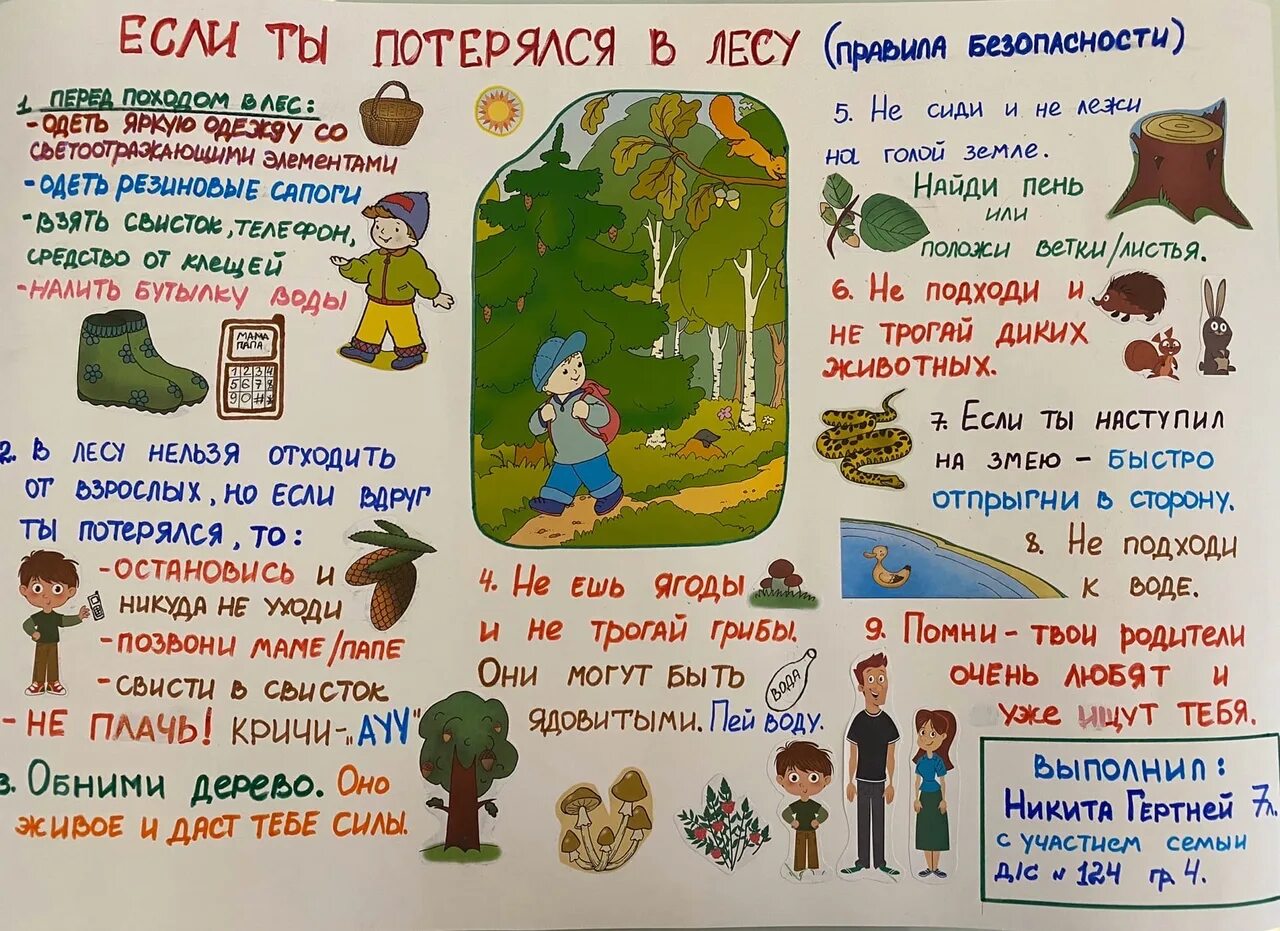 ЕСЛИ ТЫ ПОТЕРЯЛСЯ В ЛЕСУ (ПРАВИЛА БЕЗОПАСНОСТИ)
1 ПЕРЕД ПОХОДОМ В ЛЕС:
-ОДЕТЬ ЯРКУЮ ОДЕЖДУ СО
СВЕТООТРАЖАЮЩИМИ ЭЛЕМЕНТАМИ
-ОДЕТЬ РЕЗИНОВЫЕ САПОГИ
-ВЗЯТЬ СВИСТОК, ТЕЛЕФОН,
СРЕДСТВО ОТ КЛЕЩЕЙ
-НАЛИТЬ БУТЫЛКУ ВОДЫ
МАМА
ПАПА
1 2 3 4
5 6 7 8
9 0 # *
2. В ЛЕСУ НЕЛЬЗЯ ОТХОДИТЬ
ОТ ВЗРОСЛЫХ, НО ЕСЛИ ВДРУГ
ТЫ ПОТЕРЯЛСЯ, ТО:
-ОСТАНОВИСЬ И
НИКУДА НЕ УХОДИ
-ПОЗВОНИ МАМЕ/ПАПЕ
-СВИСТИ В СВИСТОК
-НЕ ПЛАЧЬ! КРИЧИ-„АУУ"
3. ОБНИМИ ДЕРЕВО. ОНО
ЖИВОЕ И ДАСТ ТЕБЕ СИЛЫ.
4. НЕ ЕШЬ ЯГОДЫ
И НЕ ТРОГАЙ ГРИБЫ.
ОНИ МОГУТ БЫТЬ
ЯДОВИТЫМИ. ПЕЙ ВОДУ.
ВОДА
5. НЕ СИДИ И НЕ ЛЕЖИ
НА ГОЛОЙ ЗЕМЛЕ.
НАЙДИ ПЕНЬ
ИЛИ
ПОЛОЖИ ВЕТКИ/ЛИСТЬЯ.
6. НЕ ПОДХОДИ И
НЕ ТРОГАЙ ДИКИХ
ЖИВОТНЫХ.
7. ЕСЛИ ТЫ НАСТУПИЛ
НА ЗМЕЮ - БЫСТРО
ОТПРЫГНИ В СТОРОНУ.
8. НЕ ПОДХОДИ
К ВОДЕ.
9. ПОМНИ - ТВОИ РОДИТЕЛИ
ОЧЕНЬ ЛЮБЯТ И
УЖЕ ИЩУТ ТЕБЯ.
ВЫПОЛНИЛ:
НИКИТА ГЕРТНЕЙ 7л.
С УЧАСТИЕМ СЕМЬИ
Д/С № 124 ГР. 4.